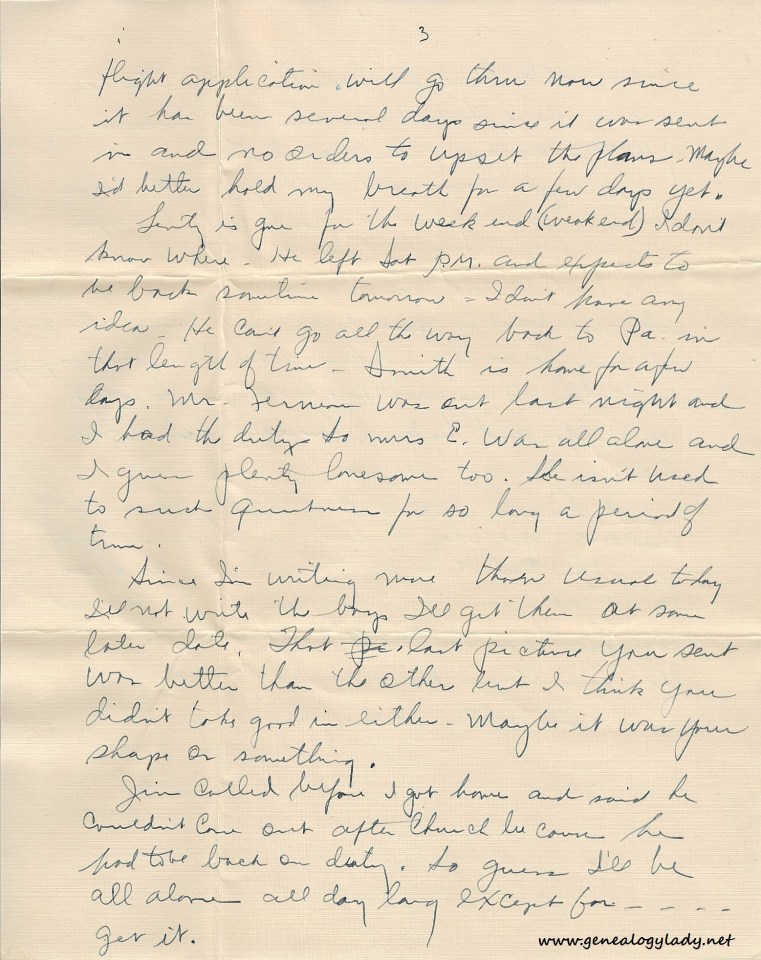 3
flight application will go thru now since
it has been several days since it was sent
in and no orders to upset the plans. Maybe
I'd better hold my breath for a few days yet.
is gone for the week end (weekend) I don't
know where - He left Sat P.M. and expects to
be back sometime tomorrow = I don't have any
idea - He can't go all the way back to Pa. in
that length of time - Smith is home for a few
days. Mr. was out last night and
I had the duty so Mrs E. was all alone and
I guess plenty lonesome too. She isn't used
to such quietness for so long a period of
time.
Since I'm writing more than usual today
I'll not write the boys I'll get them at some
later date. That last picture you sent
was better than the other but I think you
didn't take good in either - Maybe it was your
shape or something.
Jim called before I got home and said he
couldn't come out after Church because he
had to be back on duty. So guess I'll be
all alone all day long except for - - - -
get it.
www.genealogylady.net